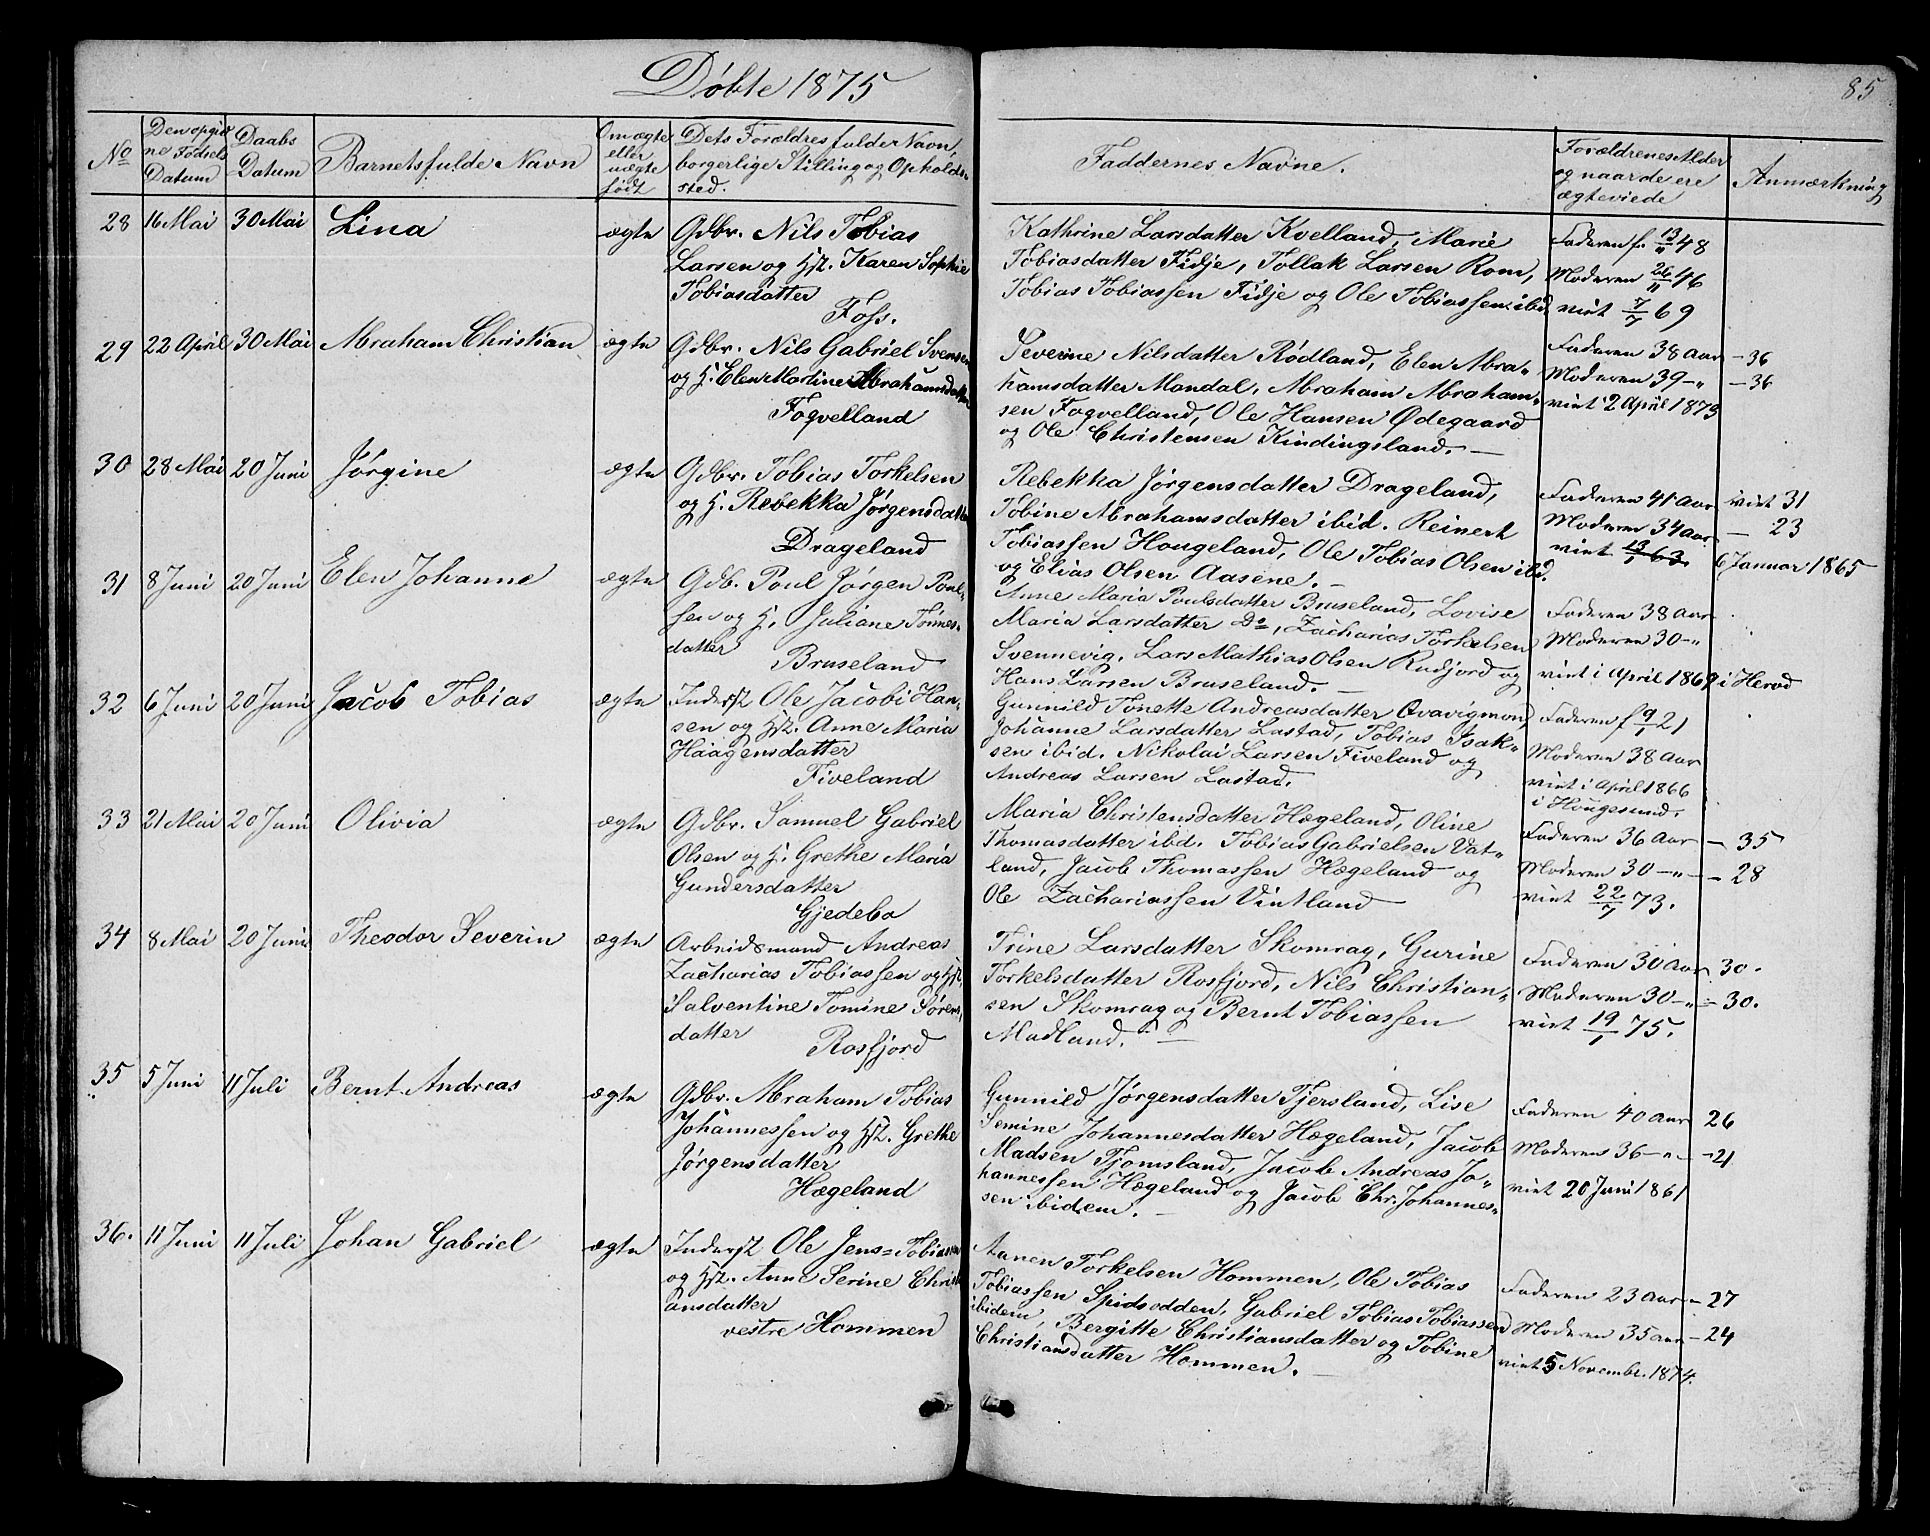 Döbte 1875
85
No
Den opgiv
ne Födsels
Datum
Daabs
Datum
Barnets fulde Navn
Om ægte
eller
uægte
födt
Dets Forældres fulde Navn,
borgerlige Stilling og Opholds-
sted.
Faddernes Navne.
Forældrenes Alder
og naar de ere
ægteviede
Anmærkning
28 16 Mai 30 Mai Lina ægte
Gdbr. Nils Tobias
Larsen og Hst. Karen Sophie
Tobiasdatter
Foss.
Kathrine Larsdatter Kvelland, Marie
Tobiasdatter Fidje, Tollak Larsen Rom,
Tobias Tobiassen Fidje og Ole Tobiassen ibid.
Faderen f. 13/11 48
Moderen 26/11 46
viet 7/7 69
29 22 April 30 Mai Abraham Christian ægte
Gdbr. Nils Gabriel Svensen
og H. Elen Martine Abrahamsdatter
Foqvelland
Severine Nilsdatter Rödland, Elen Abra-
hamsdatter Mandal, Abraham Abraham-
sen Foqvelland, Ole Hansen Ödegaard
og Ole Christensen Kindingsland. —
Faderen 38 Aar - 36
Moderen 39 -"- - 36
viet 2 April 1873
30 28 Mai 20 Juni Jörgine ægte
Gdbr. Tobias Torkelsen
og H. Rebekka Jörgensdatter
Drageland
Rebekka Jörgensdatter Drageland,
Tobine Abrahamsdatter ibid. Reinert
Tobiassen Hougeland, Ole Tobias Olsen ibd.
og Elias Olsen Aasene. —
Faderen 41 Aar viet 31
Moderen 34 Aar — 23
viet 13/1 63. 6 Januar 1865
31 8 Juni 20 Juni Elen Johanne ægte
Gdb. Poul Jörgen Poul-
sen og H. Juliane Tönnes-
datter
Bruseland
Anne Maria Poulsdatter Bruseland, Lovise
Maria Larsdatter Do, Zacharias Torkelsen
Svennevig, Lars Mathias Olsen Rudjord og
Hans Larsen Bruseland. —
Faderen 38 Aar
Moderen 30 -"
viet i April 1869 i Herod
32 6 Juni 20 Juni Jacob Tobias ægte
Inderst Ole Jacobi Han-
sen og Hst. Anne Maria
Haagensdatter
Fiveland
Gunnild Tonette Andreasdatter Qvavigmon,
Johanne Larsdatter Lastad, Tobias Isak-
sen ibid. Nikolai Larsen Fiveland og
Andreas Larsen Lastad.
Faderen f 9/1 21
Moderen 38 Aar
viet i April 1866
i Hougesund.
33 21 Mai 20 Juni Olivia ægte
Gdbr. Samuel Gabriel
Olsen og H. Grethe Maria
Gundersdatter
Gjedebo
Maria Christensdatter Hægeland, Oline
Thomasdatter ibd. Tobias Gabrielsen Vat-
land, Jacob Thomassen Hægeland og
Ole Zachariassen Vintland
Faderen 36 Aar - 35
Moderen 30 -"- - 28
viet 22/7 73.
34 8 Mai 20 Juni Theodor Severin ægte
Arbeidsmand Andreas
Zacharias Tobiassen og Hst.
Salventine Tomine Sörens-
datter
Rosfjord
Trine Larsdatter Skomrag, Gurine
Torkelsdatter Rosfjord, Nils Christian-
sen Skomrag og Bernt Tobiassen
Madland. —
Faderen 30 Aar 30.
Moderen 30 -"- 30.
viet 19/1 75.
35 5 Juni 11 Juli Bernt Andreas ægte
Gdbr. Abraham Tobias
Johannessen og Hst. Grethe
Jörgensdatter
Hægeland
Gunnild Jörgensdatter Tjersland, Lise
Semine Johannesdatter Hægeland, Jacob
Madsen Tjomsland, Jacob Andreas Jo-
hannessen Hægeland og Jacob Chr. Johannes-
sen ibidem. —
Faderen 40 Aar 26
Moderen 36 -"- - 21
viet 20 Juni 1861
36. 11 Juni 11 Juli Johan Gabriel ægte
Inderst Ole Jens=Tobiassen
og Hst. Anne Serine Christi
ansdatter
vestre Hommen
Aanen Torkelsen Hommen, Ole Tobias
Tobiassen Spidsodden, Gabriel Tobias Tobiassen
ibidem, Bergitte Christiansdatter og Tobine
Christiansdatter Hommen. —
Faderen 23 Aar - 27
Moderen 35 Aar - 24
viet 5 Novembr. 1874.